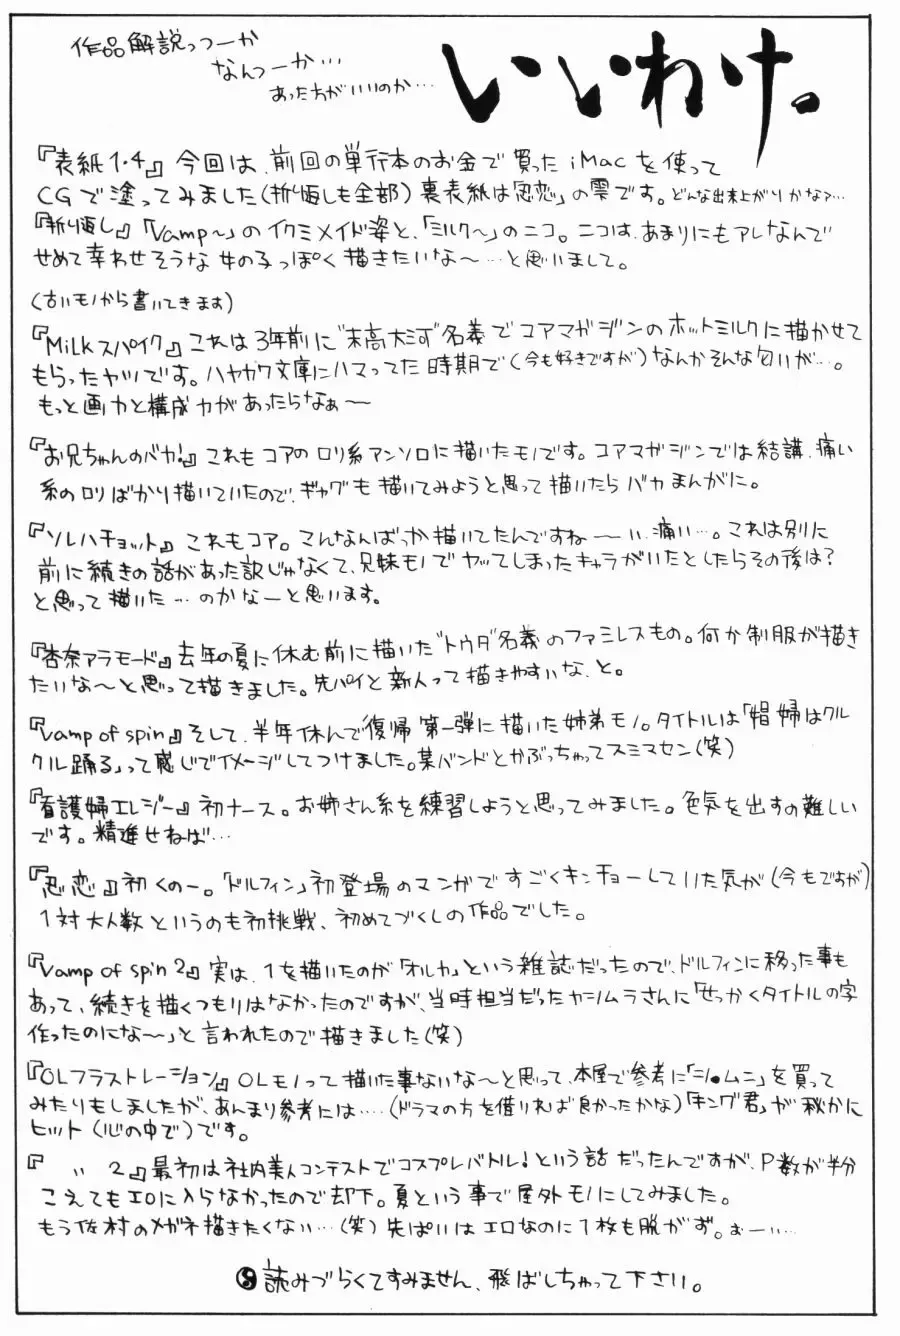 作品解説っつーか
なんつーか…
あった方がいいのか…
いいわけ。
『表紙1・4』今回は、前回の単行本のお金で買ったiMacを使って
CGで塗ってみました(折り返しも全部)裏表紙は「忍恋」の雫です。どんな出来上がりかなァ…
『折り返し』「Vamp〜」のイクミメイド姿と、「ミルク〜」のニコ。ニコは、あまりにもアレなんで
せめて幸わせそうな女の子っぽく描きたいな〜…と思いまして。
(古いモノから書いてきます)
『Milkスパイク』これは3年前に"末高大河"名義でコアマガジンのホットミルクに描かせて
もらったヤツです。ハヤカワ文庫にハマってた時期で(今も好きですが)なんかそんな匂いが…。
もっと画力と構成力があったらなぁ〜
『お兄ちゃんのバカ!』これもコアのロリ系アンソロに描いたモノです。コアマガジンでは結講、痛い
系のロリばかり描いていたので、ギャグも描いてみようと思って描いたらバカまんがに。
『ソレハチョット』これもコア。こんなんばっか描いてたんですね〜い、痛い…。これは別に
前に続きの話があった訳じゃなくて、兄妹モノでヤッてしまったキャラがいたとしたらその後は?
と思って描いた…のかなーと思います。
『杏奈アラモード』去年の夏に休む前に描いた"トウタ"名義のファミレスもの。何か制服が描き
たいな〜と思って描きました。先パイと新人って描きやすいな、と。
『Vamp of spin』そして、半年休んで復帰第一弾に描いた姉弟モノ。タイトルは「娼婦はクル
クル踊る」って感じでイメージしてつけました。某バンドとかぶっちゃってスミマセン(笑)
『看護婦エレジー』初ナース。お姉さん系を練習しようと思ってみました。色気を出すの難しい
です。精進せねば…
『忍恋』初くのー。「ドルフィン」初登場のマンガですごくキンチョーしていた気が(今もですが)
1対大人数というのも初挑戦、初めてづくしの作品でした。
『Vamp of spin 2』実は、1を描いたのが「オルカ」という雑誌だったので、ドルフィンに移った事も
あって、続きを描くつもりはなかったのですが、当時担当だったヤシムラさんに「せっかくタイトルの字
作ったのにな〜」と言われたので描きました(笑)
『OLフラストレーション』OLモノって描いた事ないな〜と思って、本屋で参考に「シ●ムニ」を買って
みたりもしましたが、あんまり参考には…(ドラマの方を借りれば良かったかな)「キング君」が秘かに
ヒット(心の中で)です。
『〃 2』最初は社内美人コンテストでコスプレバトル!という話だったんですが、P数が半分
こえてもエロに入らなかったので却下。夏という事で屋外モノにしてみました。
もう佐村のメガネ描きたくない…(笑)先ぱいはエロなのに1枚も脱がず。おーい…
読みづらくてすみません、飛ばしちゃって下さい。